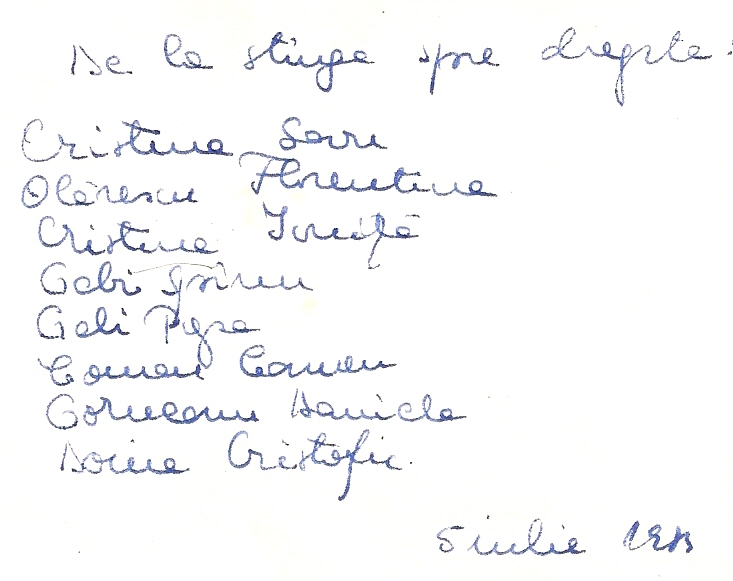 De la stinga spre dreapta:
Cristina Savu
Olărescu Florentina
Cristina Ioniţă
Gabi
Gabi Popa
Coman Carmen
Gorneanu Daniela
Doina Cristofir
5 iulie